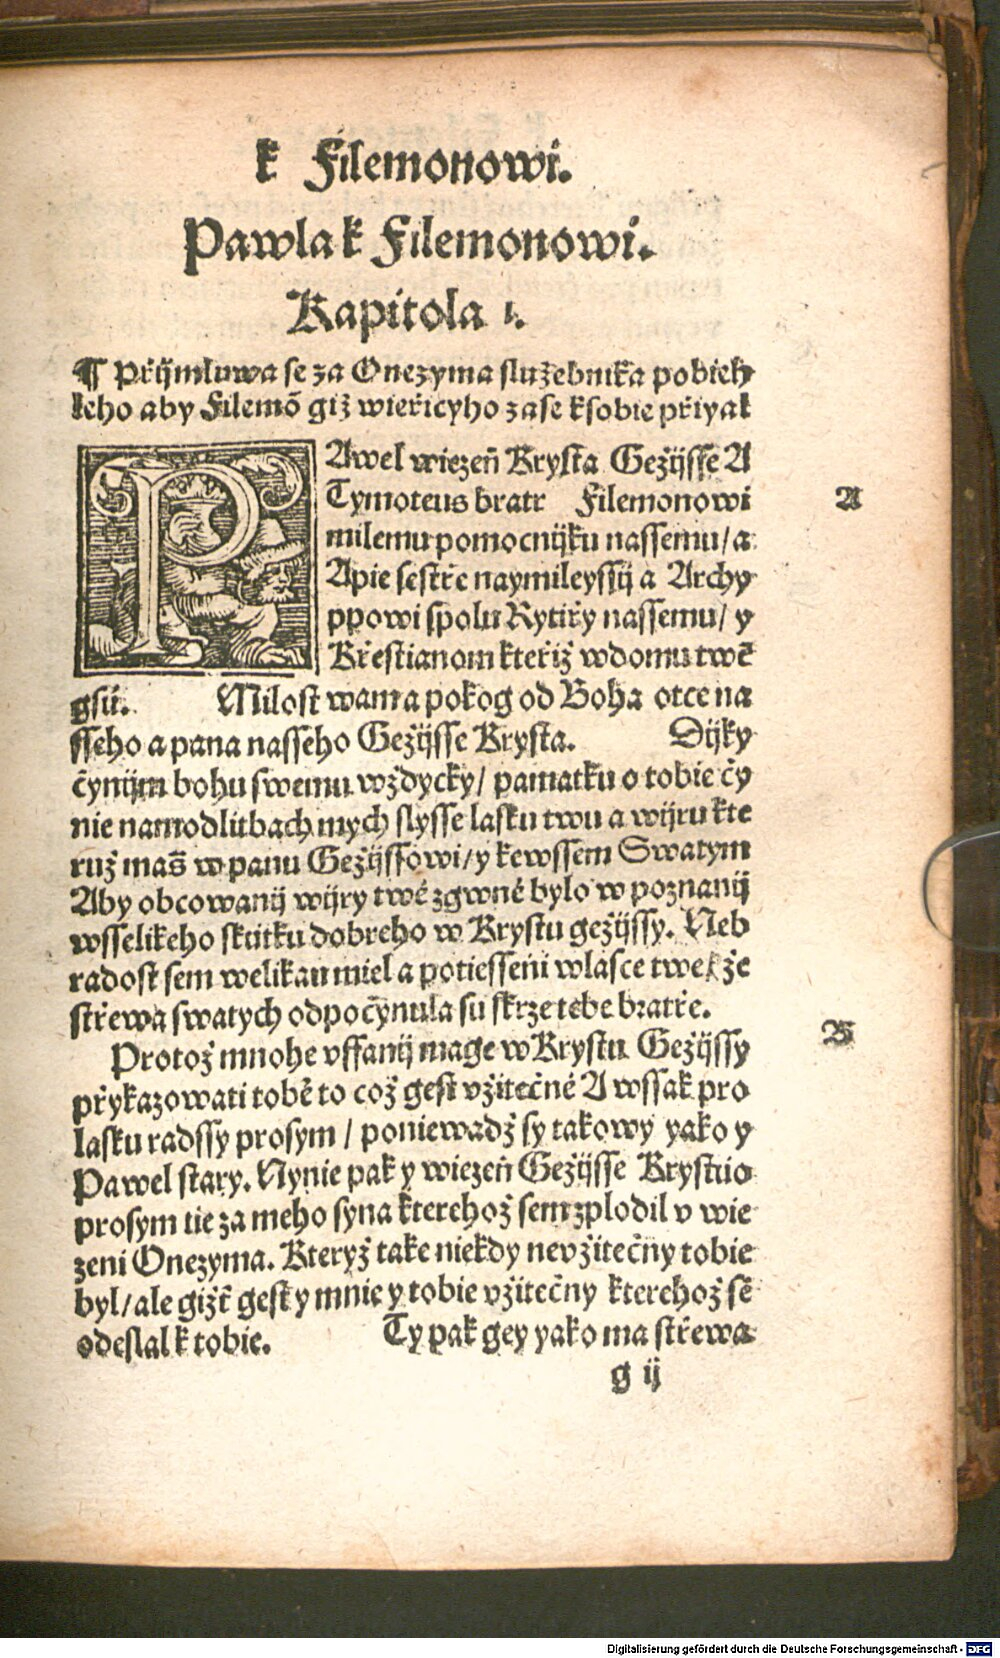 k Filemonowi.
Pawla k Filemonowi.
Kapitola 1.
¶ Přijmluwa se za Onezyma služebnika pobieh
leho aby Filemō giž wieřicyho zase k sobie přiyal
PAwel wiezeň Krysta Gežijsse A
Tymoteus bratr Filemonowi
milemu pomocnijku nassemu/ a
Apie sestře naymileyssij a Archy
ppowi spolu Rytiřy nassemu/ y
Křestianom kteřiž w domu twē
gsu. Milost wam a pokog od Boha otce na
sseho a pana nasseho Gežijsse Krysta. Dijky
čynijm bohu swemu wždycky/ pamatku o tobie čy
nie na modlitbach mych slysse lasku twu a wijru kte
ruž maš w panu Gežijssowi/ y ke wssem Swatym
Aby obcowanij wijry twé zgewné bylo w poznanij
wsselikeho skutku dobreho w Krystu gežijssy. Neb
radost sem welikau miel a potiesseni w lasce twe že
střewa swatych odpočynula su skrze tebe bratře.
Protož mnohe vffanij mage w Krystu Gežijssy
přykazowati tobě to což gest vžitečné A wssak pro
lasku radssy prosym / poniewadž sy takowy yako y
Pawel stary. Nynie pak y wiezeň Gežijsse Krystuo
prosym tie za meho syna kterehož sem zplodil v wie
zeni Onezyma. Kteryž take niekdy nevžitečny tobie
byl/ ale gižť gest y mnie y tobie vžitečny kterehož sē
odeslal k tobie. Ty pak gey yako ma střewa
g ij
A
B
Digitalisierung gefördert durch die Deutsche Forschungsgemeinschaft - DFG